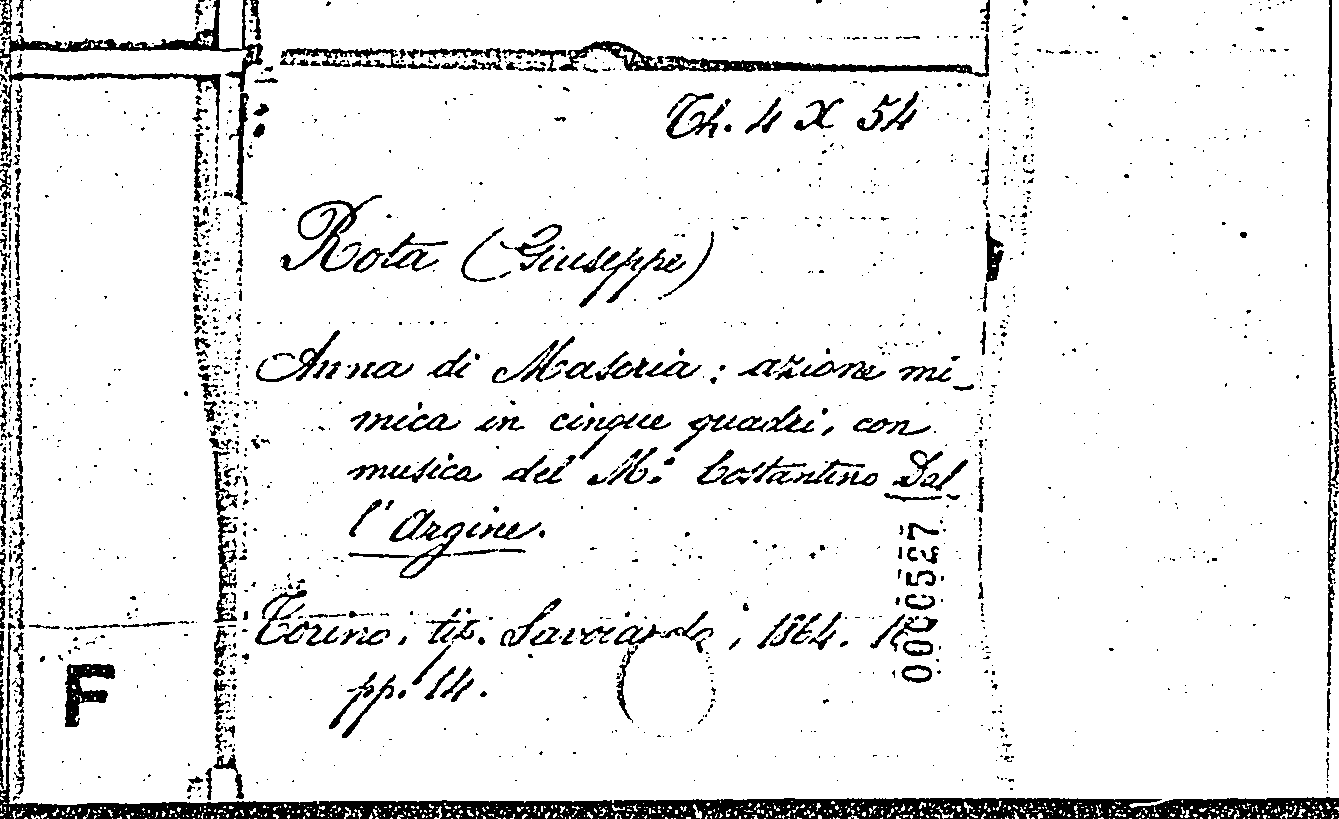 Th. 4 X 54
Rota (Giuseppe)
Anna di Masoria: azione mi-
mica in cinque quadri, con
musica del M.º Costantino Dal
l'Argine.
Torino, tip. Savoiardo, 1864.
pp. 14.
0000527
F